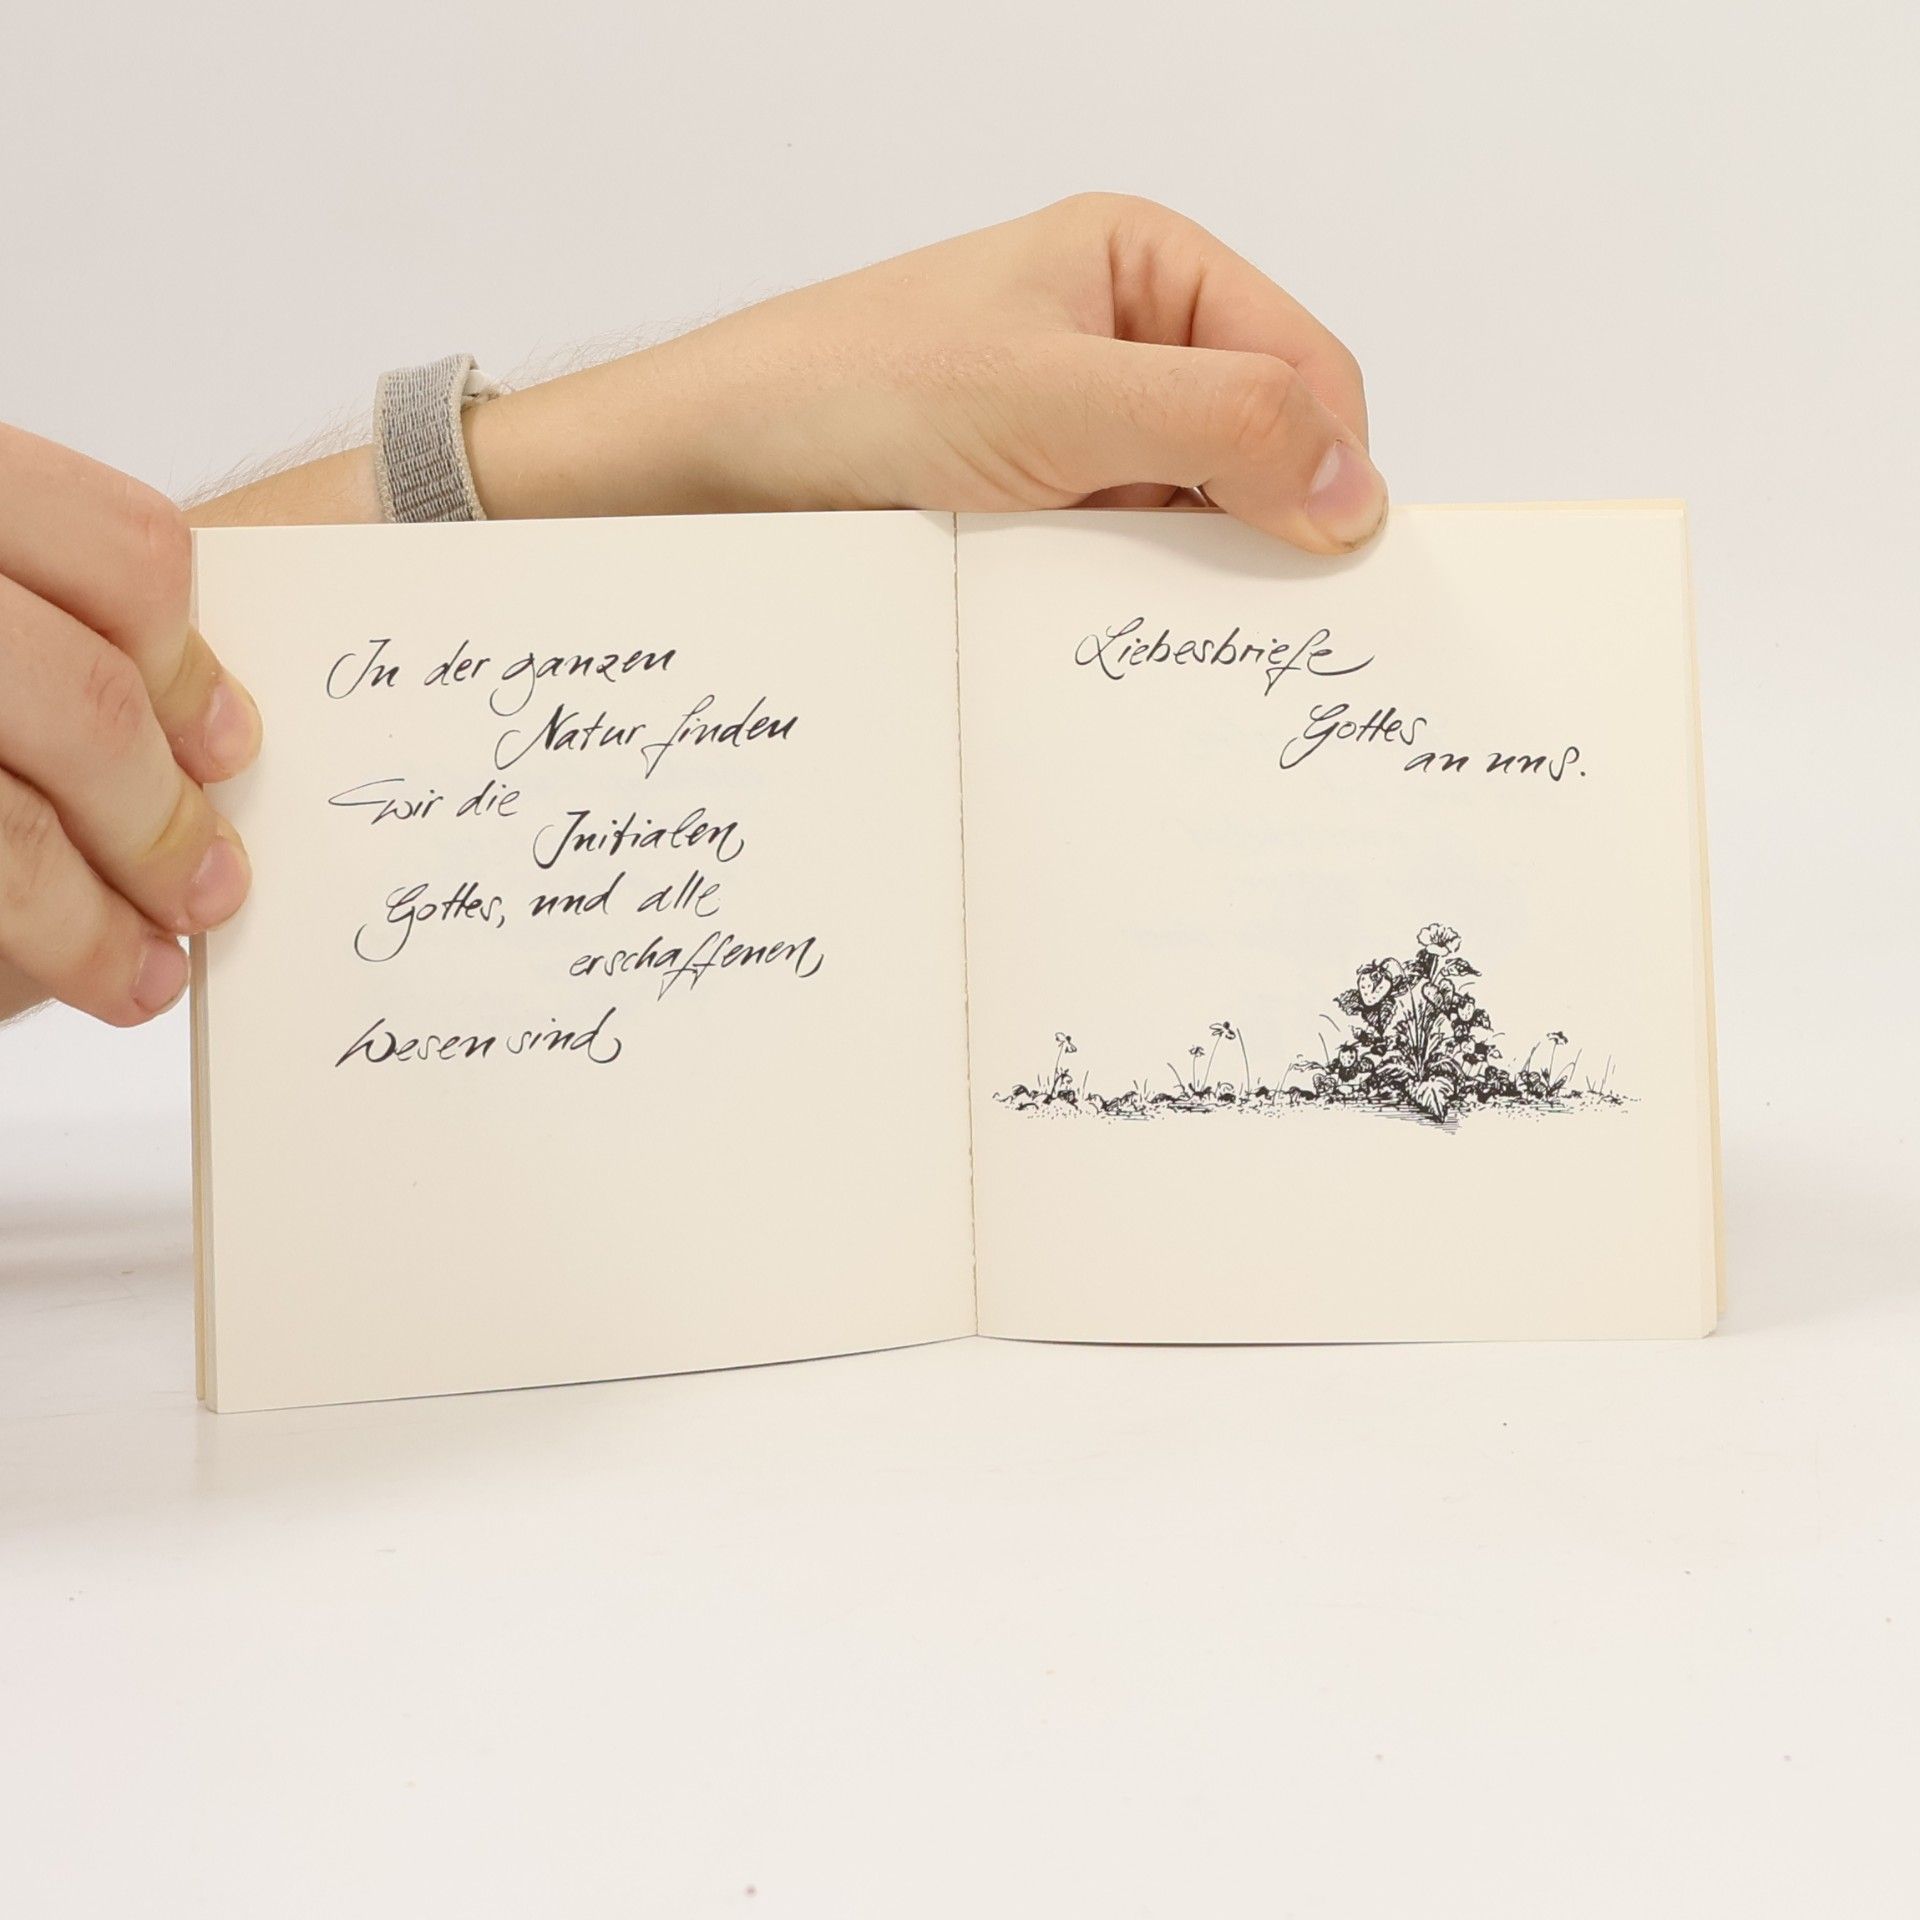 In der ganzen
Natur finden
wir die
Initialen
Gottes, und alle
erschaffenen
Wesen sind
Liebesbriefe
Gottes
an uns.